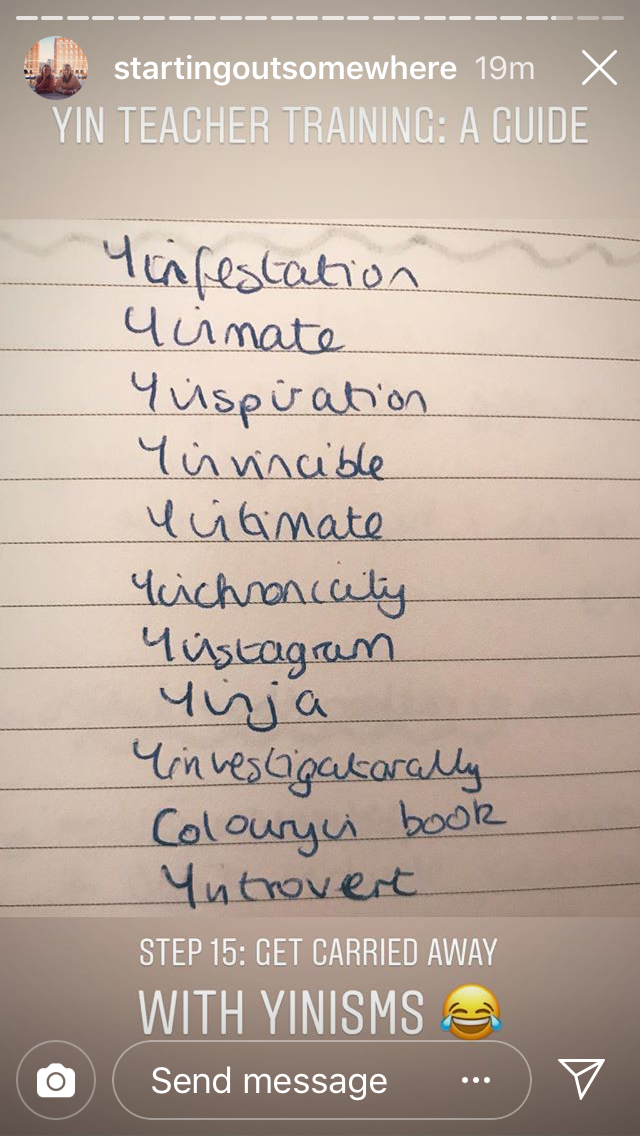 startingoutsomewhere 19m
YIN TEACHER TRAINING: A GUIDE
Yinfestation
Yinmate
Yinspiration
Yinvincible
Yintimate
Yinchronicity
Yinstagram
Yinja
Yinvestigatorally
Colouryin book
Yintrovert
STEP 15: GET CARRIED AWAY
WITH YINISMS
Send message